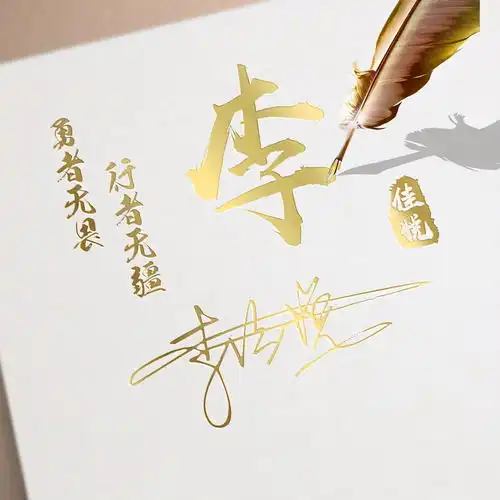 勇者无畏
行者无疆
李
佳悦
李佳悦